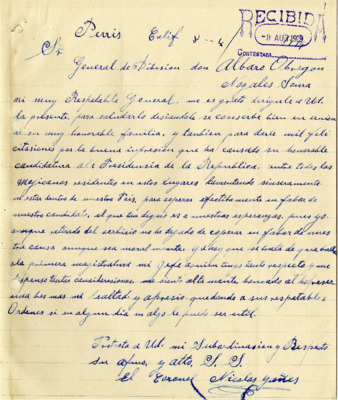 RECIBIDA
-9 AUG 1919
CONTESTADA
Perris Calif 8-4/
Sr.
General de Division don Albaro Obregon
Nogales Sonra
mi muy Respetable General, me es grato dirigirle a Ud.
la presente, para saludarlo deseandole se conserbe bien en union
de su muy honorable familia, y tambien para darle mil feli
citasiones por la buena impresion que ha causado su honorable
candidatura a la Presidencia de la Republica, entre todos los
Mejicanos residentes en estos lugares lamentando sinseramente
no estar dentro de nuestro Pais, para coperar en fabor de
nuestro candidato, el que tan digno es a nuestras esperanzas, pues yo
aunque retirado del serbicio no he dejado de coperar en fabor de nues
tra causa aunque sea moral mente
la primera magistratura mi Gefe a quien tengo tanto respecto y me
dispensa tantas consideraciones, me siento alta mente honrado al
una bes mas mi lealtad y apresio quedando a sus respetables
Ordenes si en algun dia en algo le puedo ser util.
Protesto a Ud. mi Subordinasion y Respecto
Su afmo. y atto. S. S.
El Coronel Nicolas Yañes